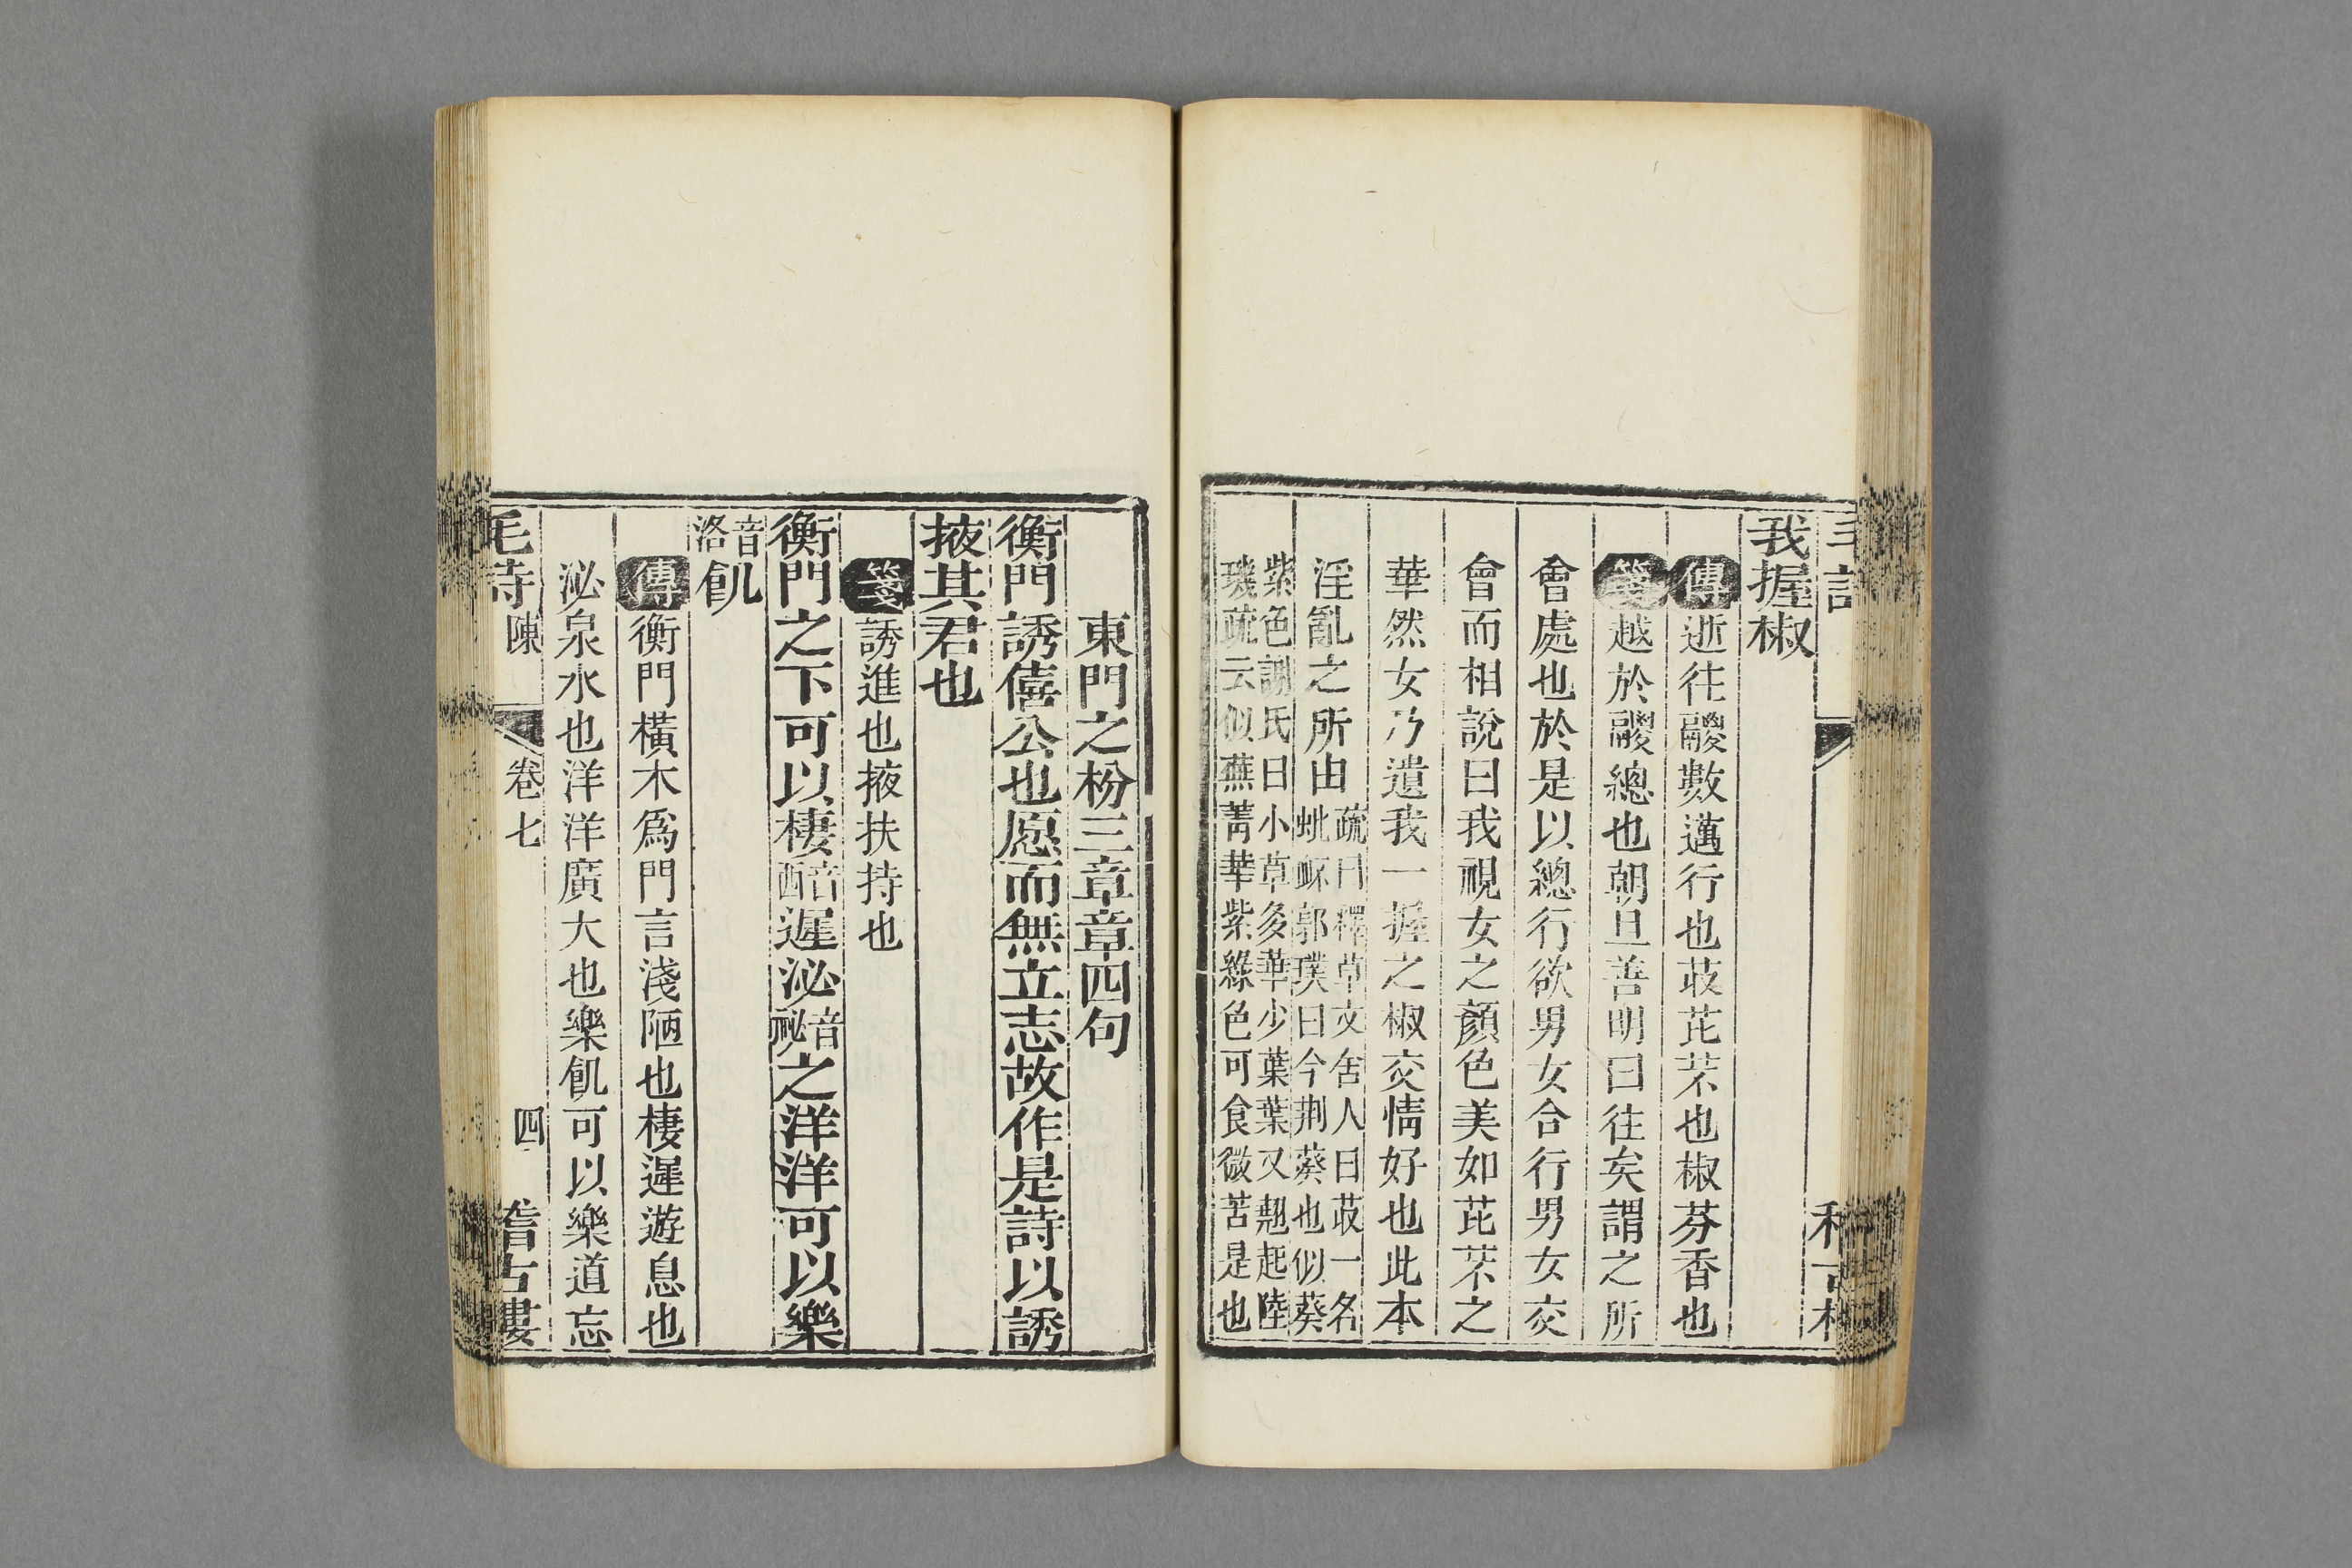 我握椒
傳逝往鬷數邁行也荍芘芣也椒芬香也
箋越於鬷總也朝旦善明曰往矣謂之所
會處也於是以總行欲男女合行男女交
會而相說曰我視女之顏色美如芘芣之
華然女乃遺我一握之椒交情好也此本
淫亂之所由
疏曰釋草文舍人曰荍一名
蚍衃郭璞曰今荆葵也似葵
紫色謝氏曰小草多華少葉葉又翹起陸
璣疏云似蕪菁華紫綠色可食微苦是也
東門之枌三章章四句
衡門誘僖公也愿而無立志故作是詩以誘
掖其君也
箋誘進也掖扶持也
衡門之下可以棲音西遲泌音祕之洋洋可以樂
音洛飢
傳衡門橫木爲門言淺陋也棲遲遊息也
泌泉水也洋洋廣大也樂飢可以樂道忘
毛詩陳 卷七 四 稽古樓